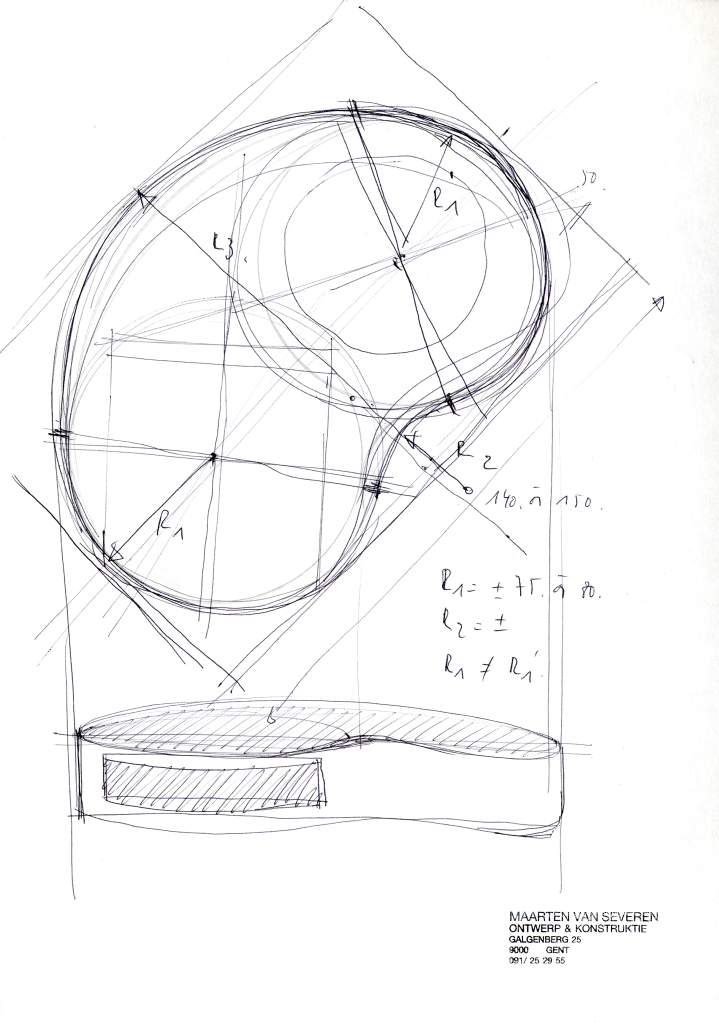 50.
R1
R3.
R2
140. à 150.
R1
R1 = ± 75. à 80.
R2 = ±
R1 ≠ R1'
MAARTEN VAN SEVEREN
ONTWERP & KONSTRUKTIE
GALGENBERG 25
9000 GENT
091/ 25 29 55